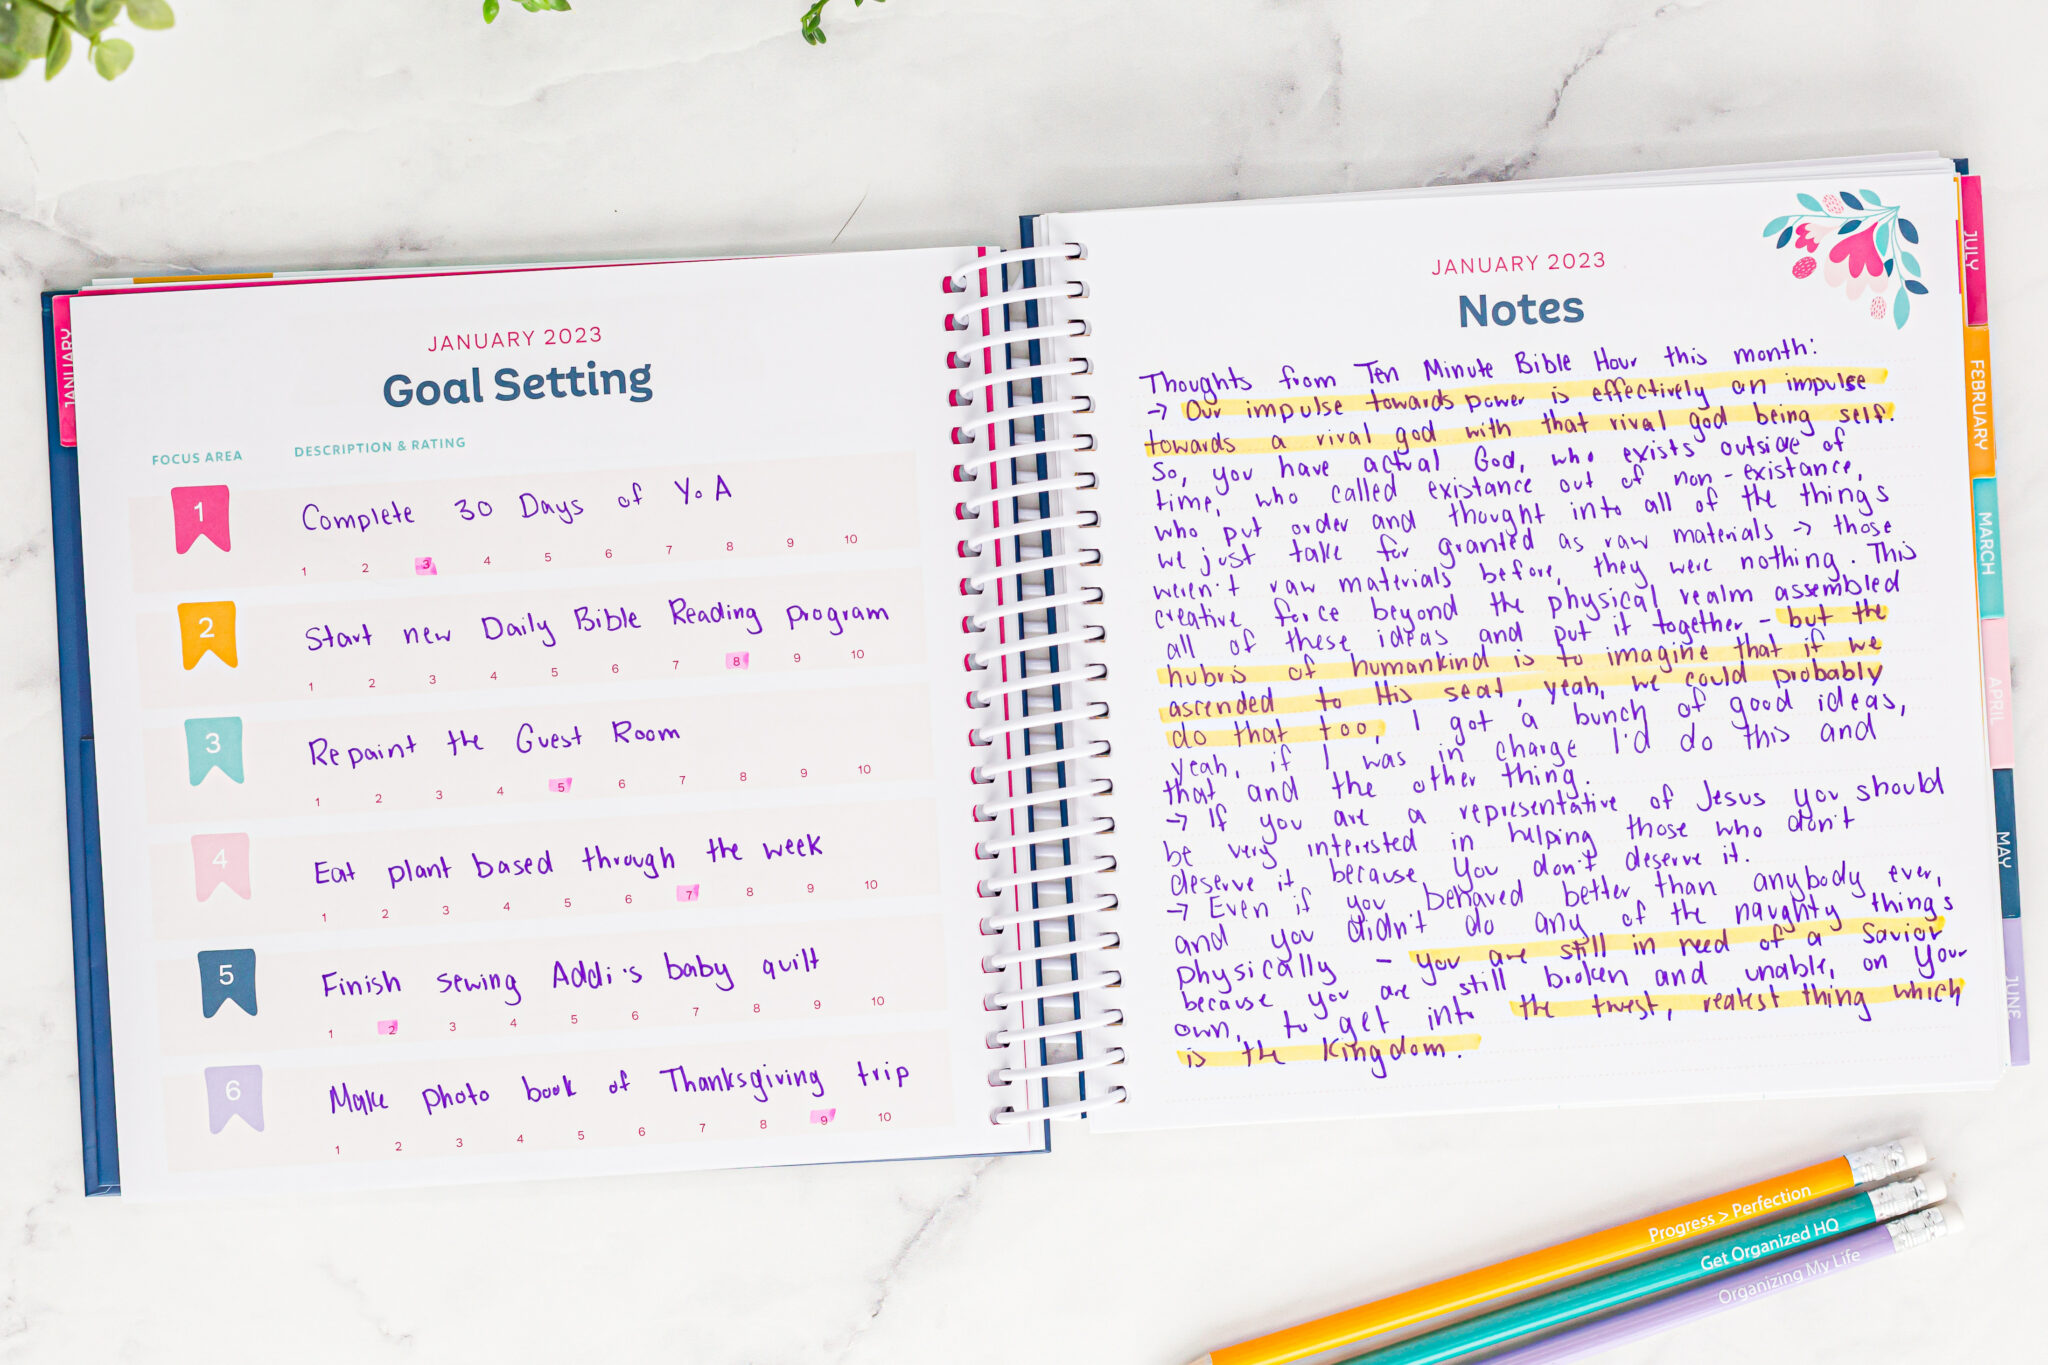 JANUARY
JANUARY 2023
Goal Setting
FOCUS AREA
DESCRIPTION & RATING
1
Complete 30 Days of YoA
1 2 3 4 5 6 7 8 9 10
2
Start new Daily Bible Reading program
1 2 3 4 5 6 7 8 9 10
3
Repaint the Guest Room
1 2 3 4 5 6 7 8 9 10
4
Eat plant based through the week
1 2 3 4 5 6 7 8 9 10
5
Finish sewing Addi's baby quilt
1 2 3 4 5 6 7 8 9 10
6
Make photo book of Thanksgiving trip
1 2 3 4 5 6 7 8 9 10
JANUARY 2023
Notes
Thoughts from Ten Minute Bible Hour this month:
→ Our impulse towards power is effectively an impulse
towards a rival god with that rival god being self.
So, you have actual God, who exists outside of
time, who called existance out of non-existance,
who put order and thought into all of the things
we just take for granted as raw materials → those
weren't raw materials before, they were nothing. This
creative force beyond the physical realm assembled
all of these ideas and put it together - but the
hubris of humankind is to imagine that if we
ascended to His seat, yeah, we could probably
do that too, I got a bunch of good ideas,
yeah, if I was in charge I'd do this and
that and the other thing.
→ If you are a representative of Jesus you should
be very interested in helping those who don't
deserve it, because you don't deserve it.
→ Even if you behaved better than anybody ever,
and you didn't do any of the naughty things
physically - you are still in need of a Savior
because you are still broken and unable, on your
own, to get into the truest, realest thing which
is the Kingdom.
JULY
FEBRUARY
MARCH
APRIL
MAY
JUNE
Progress > Perfection
Get Organized HQ
Organizing My Life